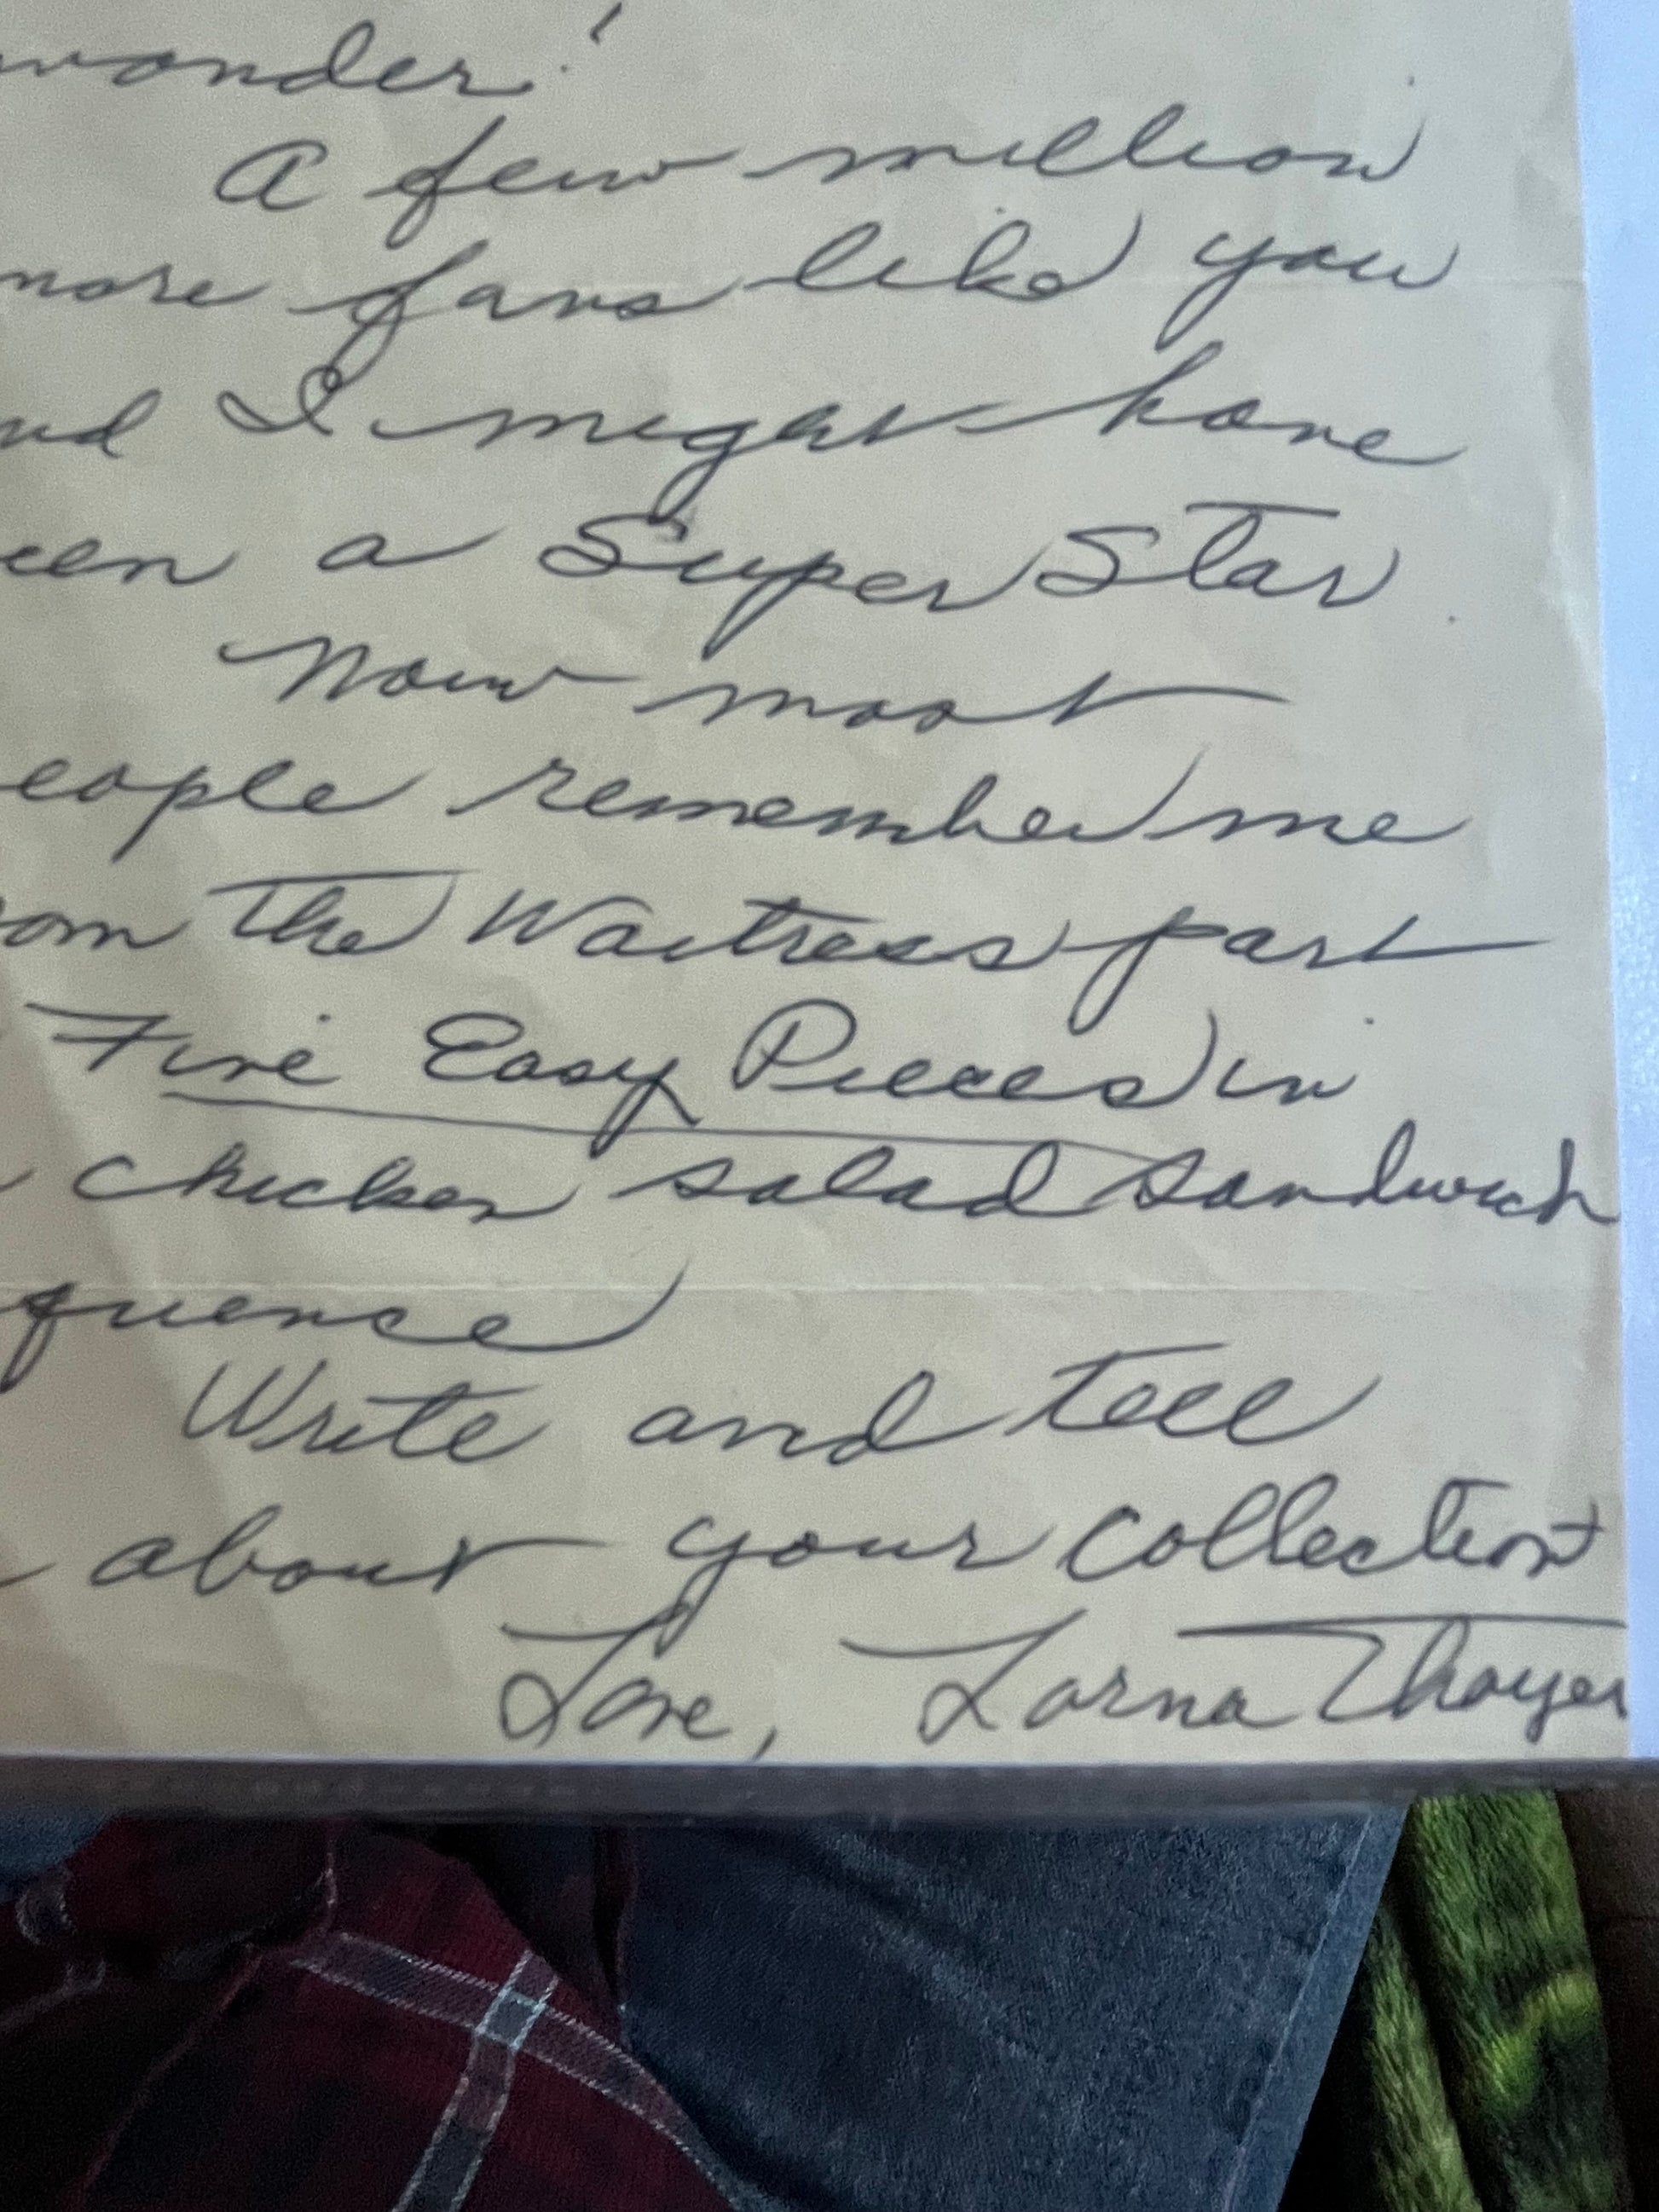 wonder!
A few million
more fans like you
nd I might have
een a Super Star
Now most
eople remember me
om the Waitress part
Five Easy Pieces in
chicken salad sandwich
quence
Write and tell
about your collection
Love, Lorna Thayer